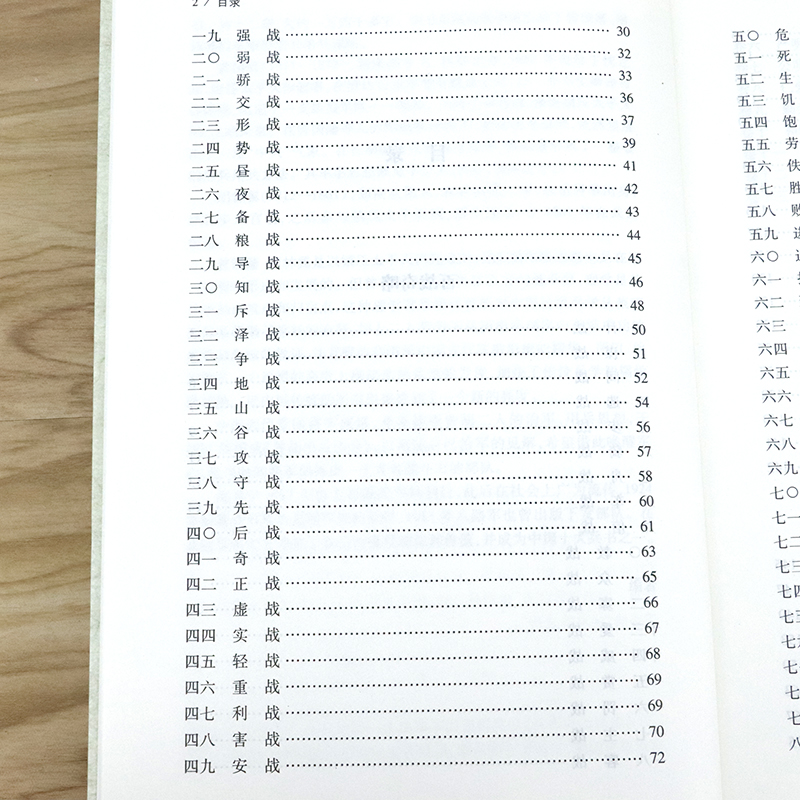 2 / 目录
一九 强 战 …… 30
二〇 弱 战 …… 32
二一 骄 战 …… 33
二二 交 战 …… 36
二三 形 战 …… 37
二四 势 战 …… 39
二五 昼 战 …… 41
二六 夜 战 …… 42
二七 备 战 …… 43
二八 粮 战 …… 44
二九 导 战 …… 45
三〇 知 战 …… 46
三一 斥 战 …… 48
三二 泽 战 …… 50
三三 争 战 …… 51
三四 地 战 …… 52
三五 山 战 …… 54
三六 谷 战 …… 56
三七 攻 战 …… 57
三八 守 战 …… 58
三九 先 战 …… 60
四〇 后 战 …… 61
四一 奇 战 …… 63
四二 正 战 …… 65
四三 虚 战 …… 66
四四 实 战 …… 67
四五 轻 战 …… 68
四六 重 战 …… 69
四七 利 战 …… 69
四八 害 战 …… 70
四九 安 战 …… 72
五〇 危
五一 死
五二 生
五三 饥
五四 饱
五五 劳
五六 佚
五七 胜
五八 败
五九 进
六〇
六一
六二
六三
六四
六五
六六
六七
六八
六九
七〇
七一
七二
七三
七四
七三
七
七
七
七
八